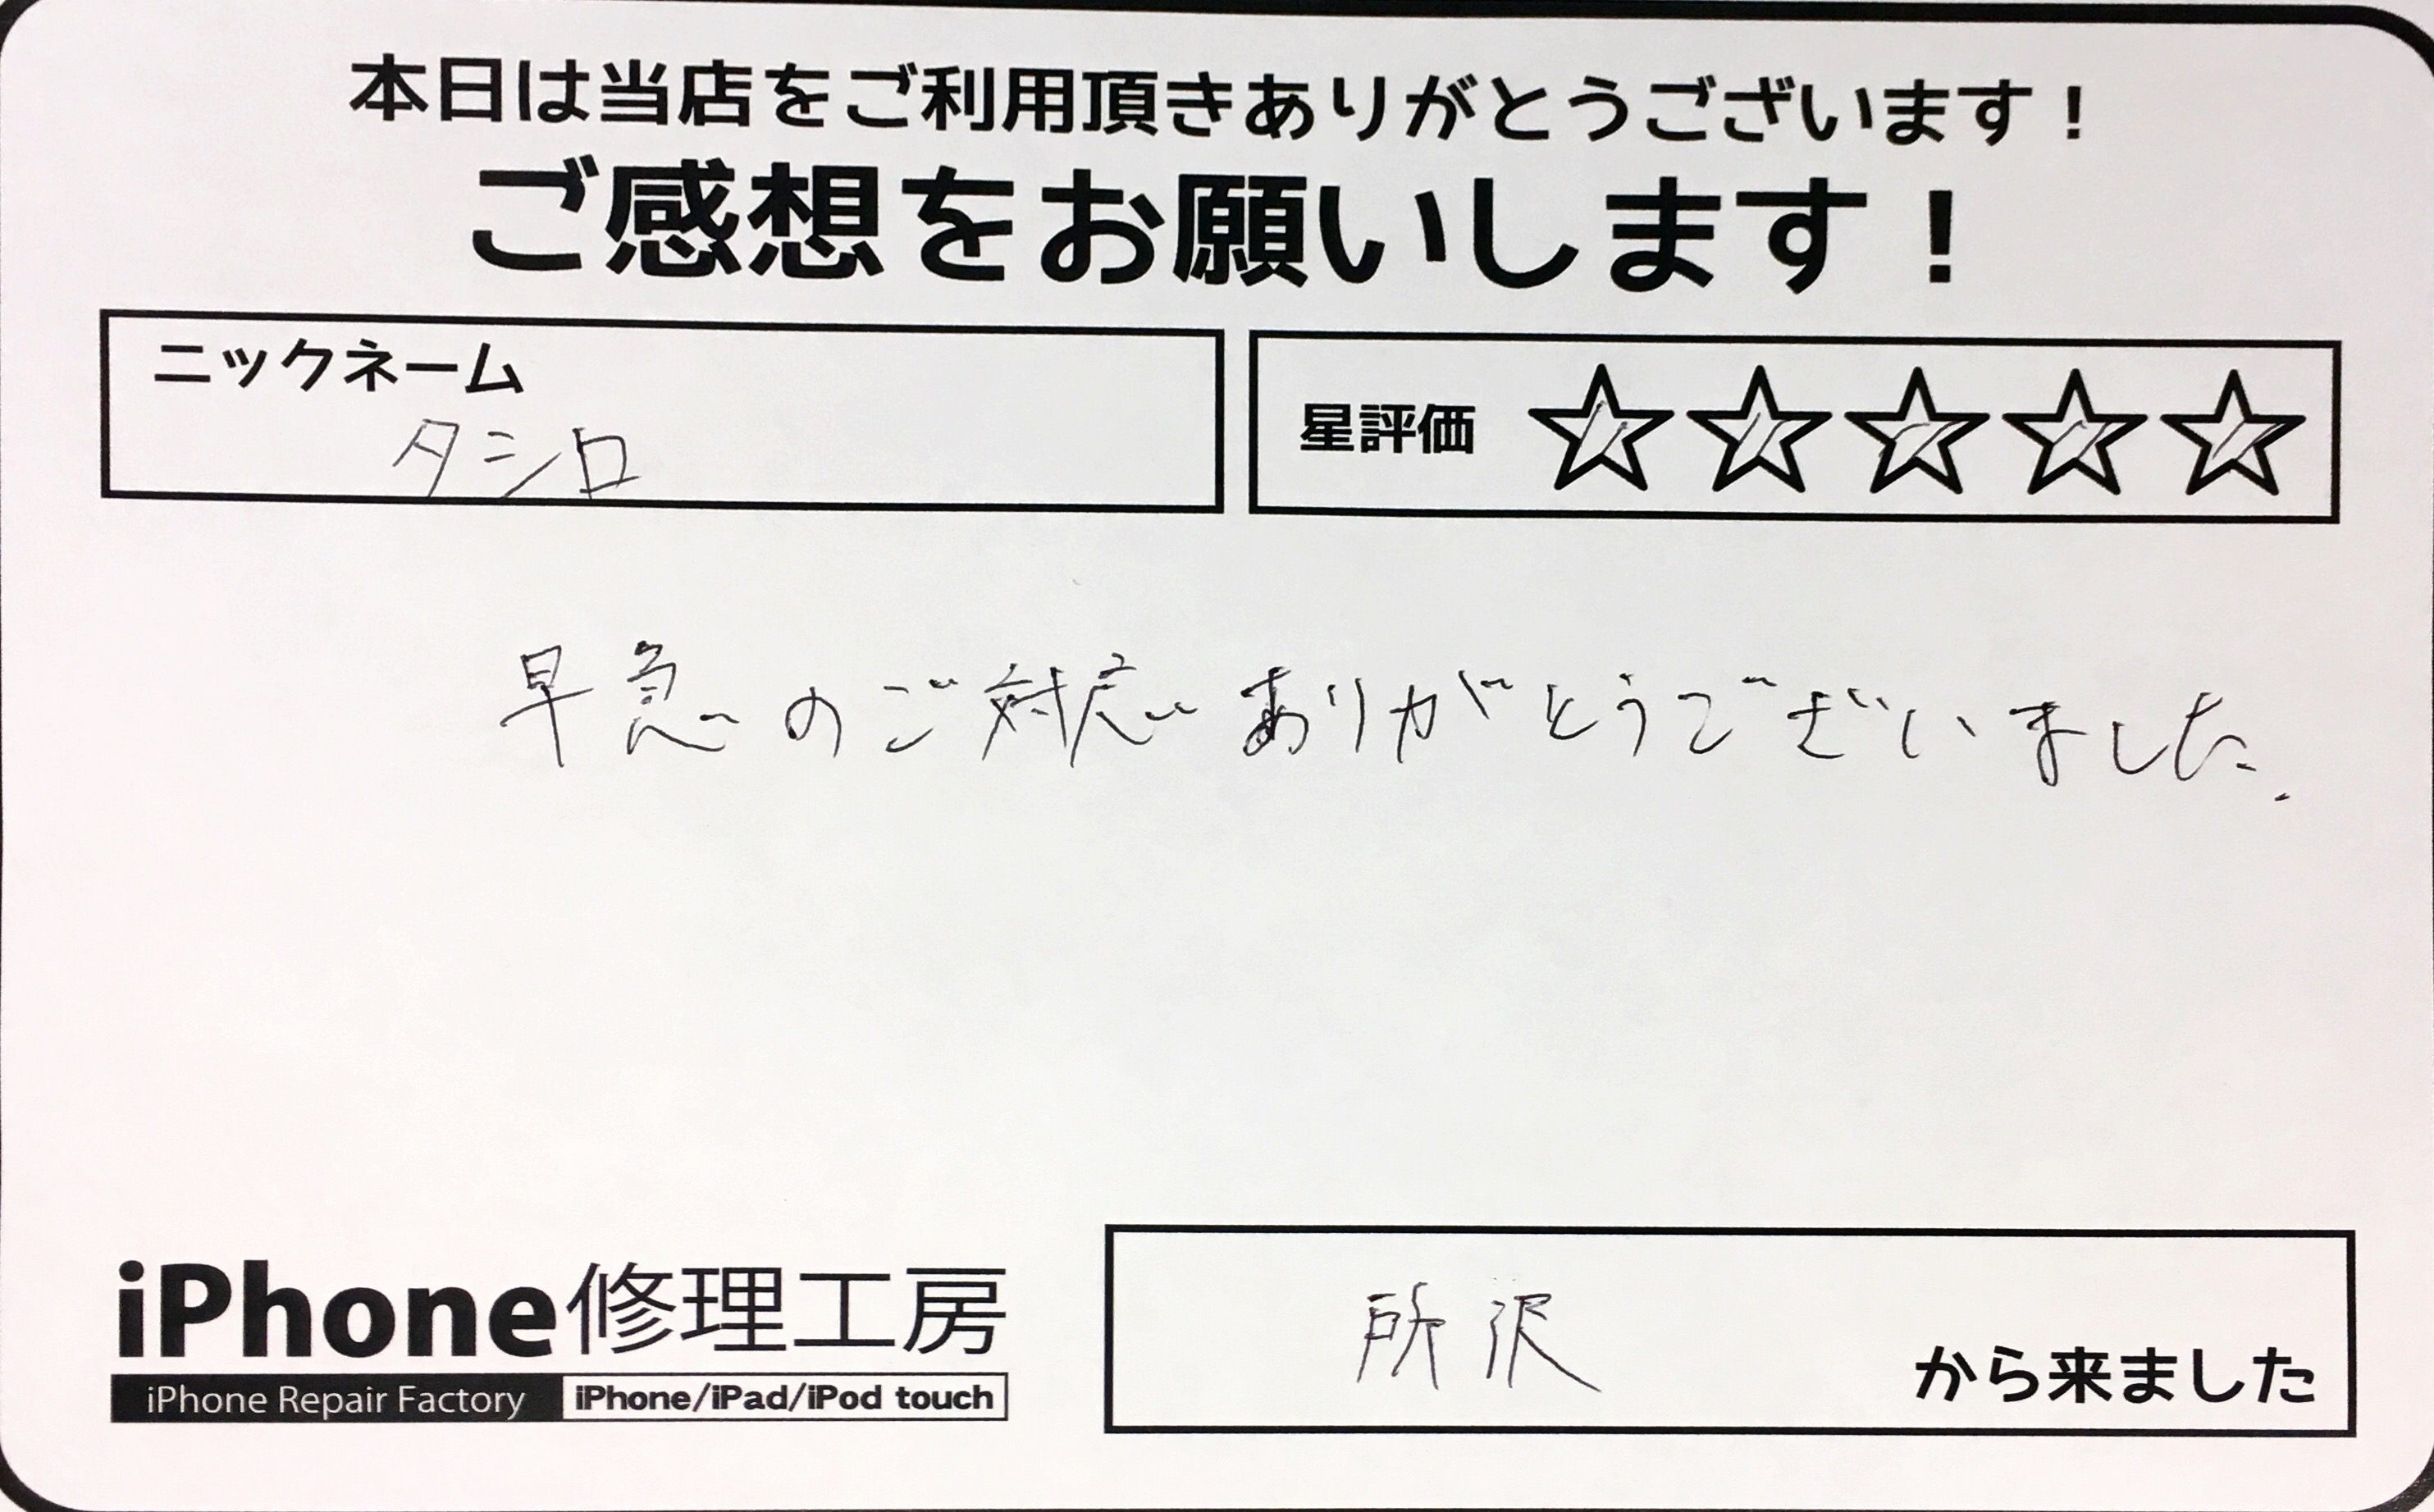 本日は当店をご利用頂きありがとうございます！
ご感想をお願いします！
ニックネーム
タシロ
星評価 ☆☆☆☆☆
早急のご対応ありがとうございました.
iPhone修理工房
iPhone Repair Factory iPhone/iPad/iPod touch
所沢 から来ました